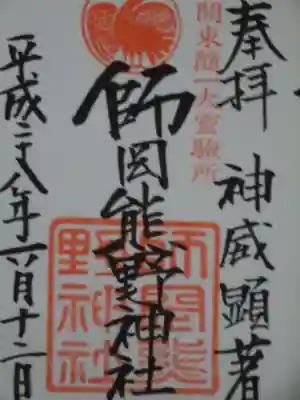 奉拝 神威顕著
関東随一大霊験所
師岡熊野神社
師岡熊野神社
平成二十八年六月十二日